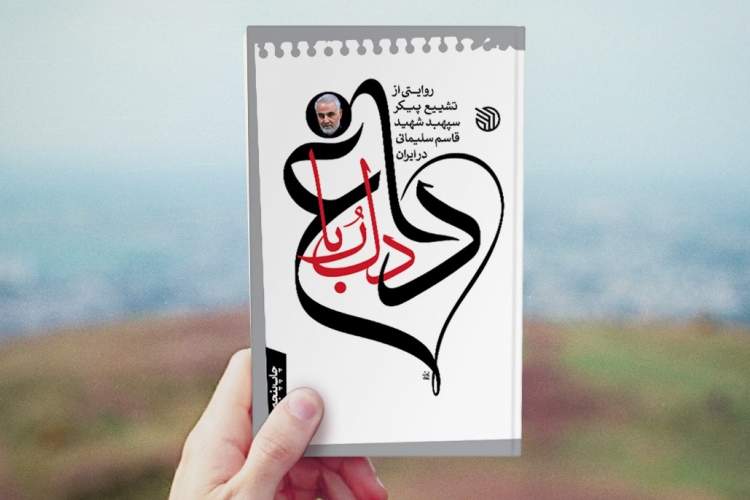 روایتی از
تشییع پیکر
سپهبد شهید
قاسم سلیمانی
در ایران
داغ
دلرُبا
چاپ پنجم